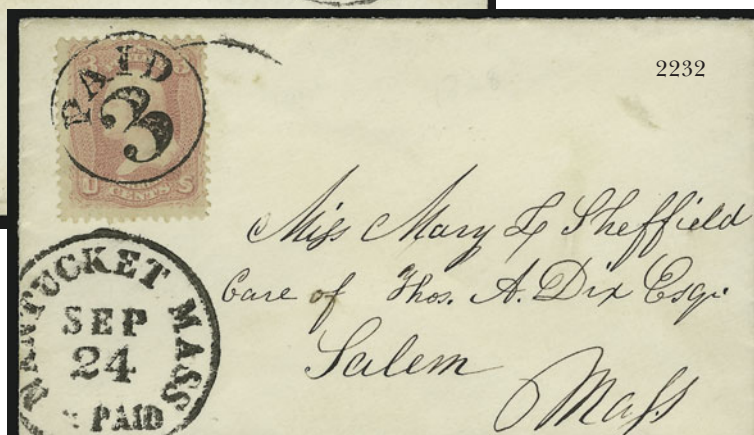 2232
PAID
3
U CENTS S
NANTUCKET MASS
SEP
24
PAID
Miss Mary L Sheffield
Care of Thos. A. Dix Esqr.
Salem
Mass